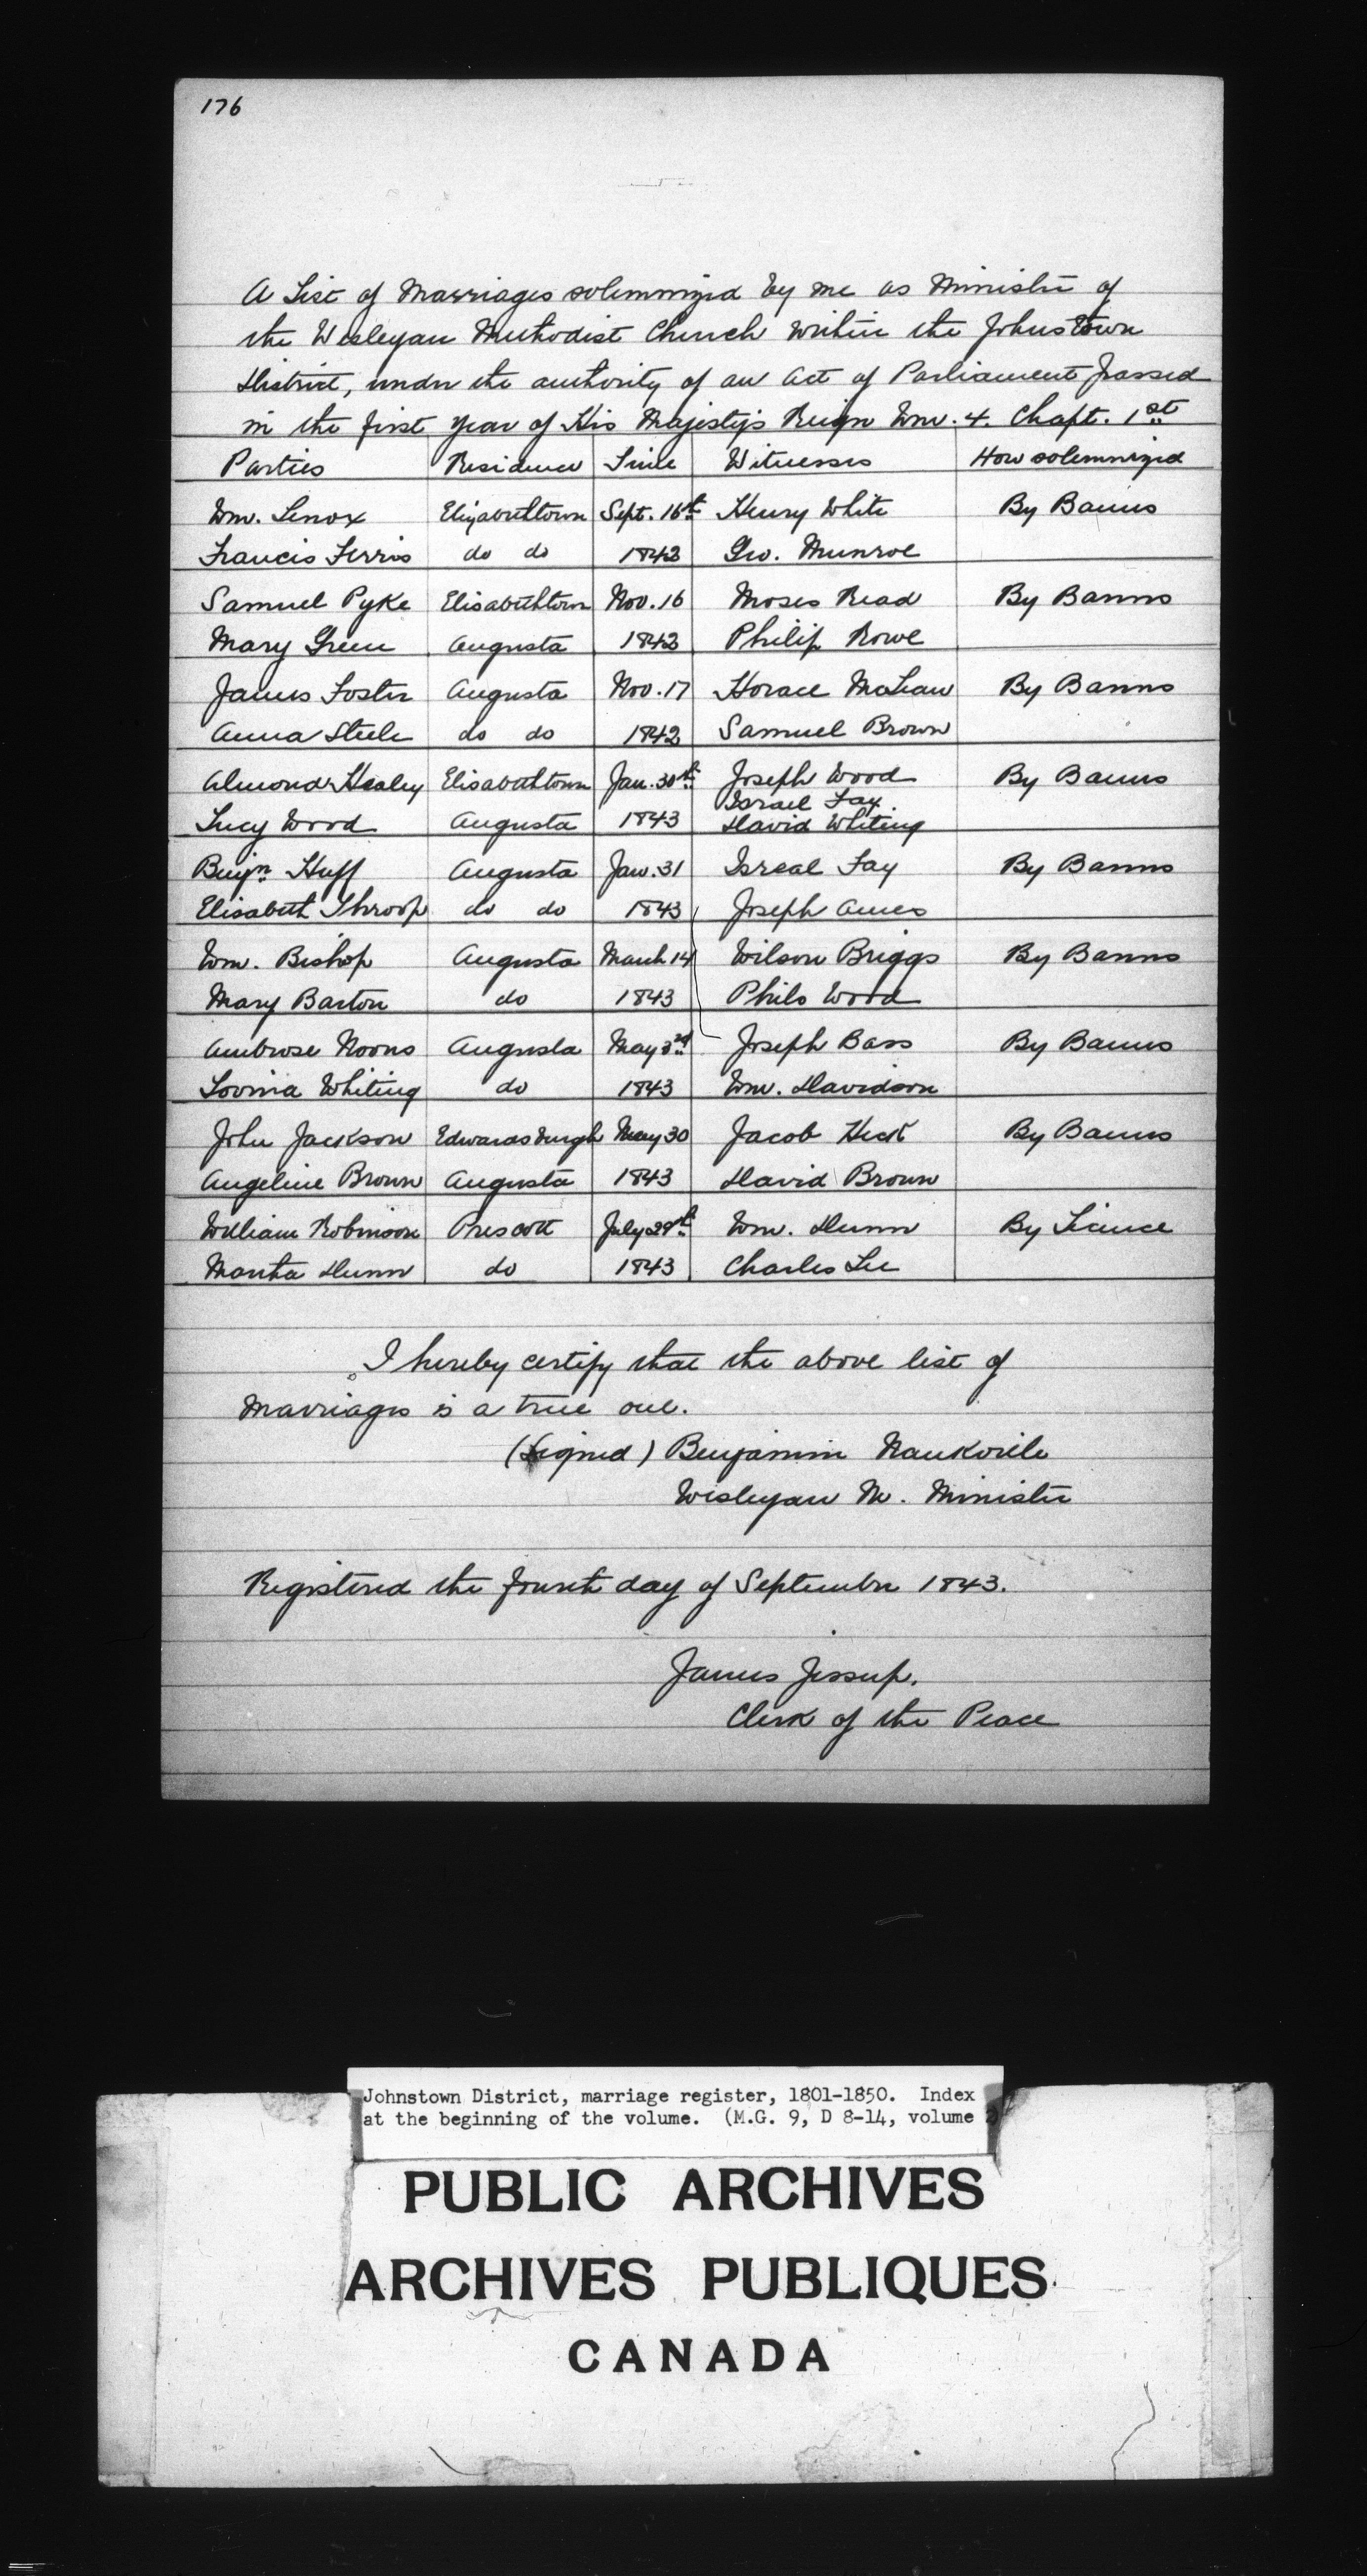 176
A List of Marriages solemnized by me as Minister of
the Wesleyan Methodist Church within the Johnstown
District, under the authority of an Act of Parliament passed
in the first year of His Majesty's Reign Wm. 4. Chapt. 1st
Parties Residence Time Witnesses How solemnized
Wm. Lenox Elizabethtown Sept. 16th Henry White By Banns
Francis Ferris do do 1842 Geo. Munroe
Samuel Pyke Elisabethtown Nov. 16 Moses Read By Banns
Mary Green Augusta 1842 Philip Rowe
James Foster Augusta Nov. 17 Horace McLean By Banns
Anna Steele do do 1842 Samuel Brown
Almond Healey Elisabethtown Jan. 30th Joseph Wood By Banns
Israel Fay.
Lucy Wood Augusta 1843 David Whiting
Benjn. Huff Augusta Jan. 31 Isreal Fay By Banns
Elisabeth Throop do do 1843 Joseph Ames
Wm. Bishop Augusta March 14 Wilson Briggs By Banns
Mary Barton do 1843 Philo Wood
Ambrose Noons Augusta May 3rd Joseph Bass By Banns
Lovina Whiting do 1843 Wm. Davidson
John Jackson Edwardsburgh May 30 Jacob Heck By Banns
Angeline Brown Augusta 1843 David Brown
William Robinson Prescott July 28th Wm. Dunn By Licence
Martha Dunn do 1843 Charles Lee
I hereby certify that the above list of
Marriages is a true one.
(Signed) Benjamin Nankville
Wesleyan M. Minister
Registered the fourth day of September 1843.
James Jessup.
Clerk of the Peace
Johnstown District, marriage register, 1801-1850. Index
at the beginning of the volume. (M.G. 9, D 8-14, volume
PUBLIC ARCHIVES
ARCHIVES PUBLIQUES
CANADA